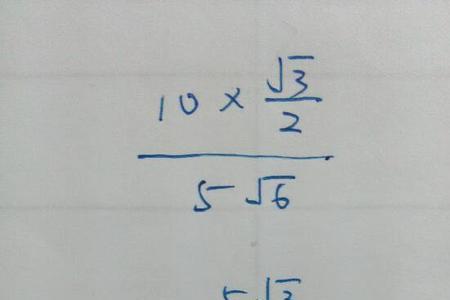 10 × √3/2
5√6
5√3